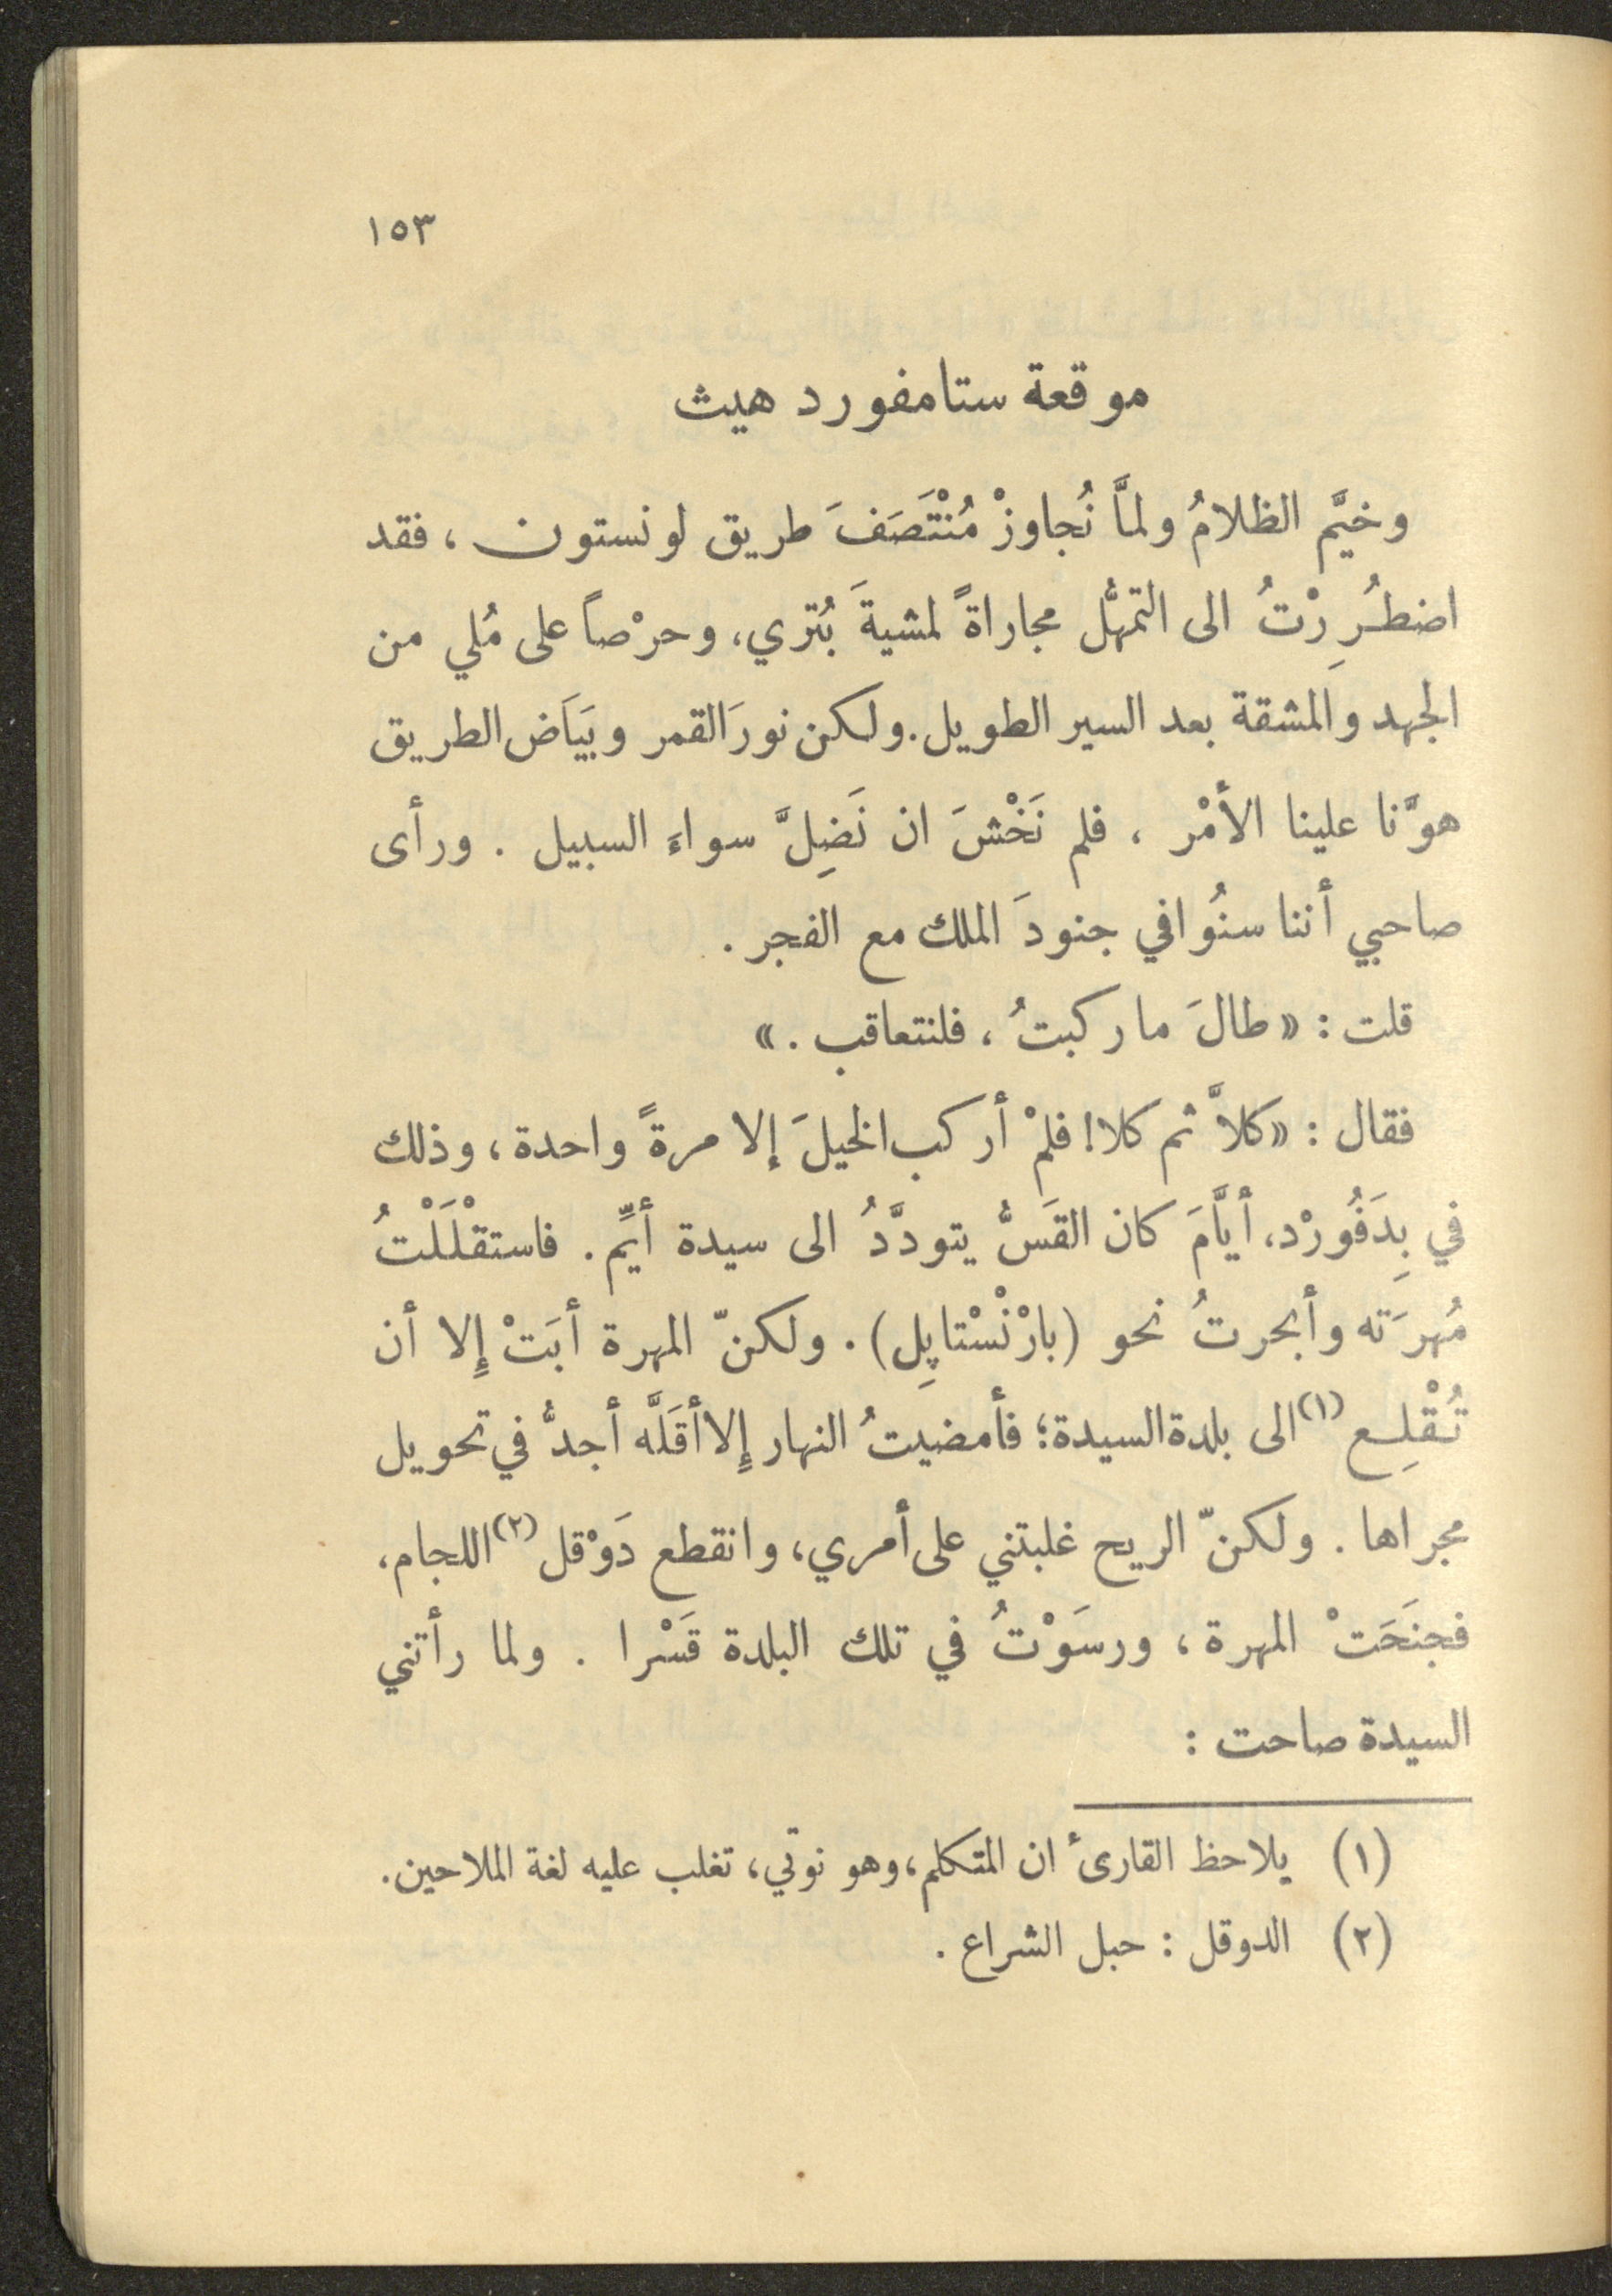 ١٥٣
موقعة ستامفورد هيث
وخيَّم الظلامُ ولمَّا نُجاوزْ مُنْتَصَفَ طريق لونستون ، فقد
اضطُرِرْتُ الى التمهُّل مجاراةً لمشيةَ بُتري، وحرْصاً على مُلي من
الجهد والمشقة بعد السير الطويل. ولكن نورَ القمر وبَيَاَض الطريق
هوَّنا علينا الأمْر ، فلم نَخْشَ ان نَضِلَّ سواءَ السبيل . ورأى
صاحبي أننا سنُوافي جنودَ الملك مع الفجر .
قلت : «طالَ ما ركبتُ ، فلنتعاقب . »
فقال : «كلاَّ ثم كلا! فلمْ أركب الخيلَ إلا مرةً واحدة ، وذلك
في بِدَفُورْد، أيَّامَ كان القَسُّ يتودَّدُ الى سيدة أيِّم. فاستقْلَلْتُ
مُهرَته وأبحرتُ نحو (بارْنْسْتاپِل) . ولكنّ المهرة أبَتْ إِلا أن
تُقْلِع (١) الى بلدة السيدة؛ فأمضيتُ النهار إِلا أقَلَّه أجدُّ في تحويل
مجراها . ولكنّ الريح غلبتني على أمري، وانقطع دَوْقل (٢) اللجام،
فجنَحَتْ المهرة ، ورسَوْتُ في تلك البلدة قَسْرا . ولما رأتني
السيدة صاحت :
(١) يلاحظ القارئ ان المتكلم، وهو نوتي، تغلب عليه لغة الملاحين.
(٢) الدوقل : حبل الشراع .